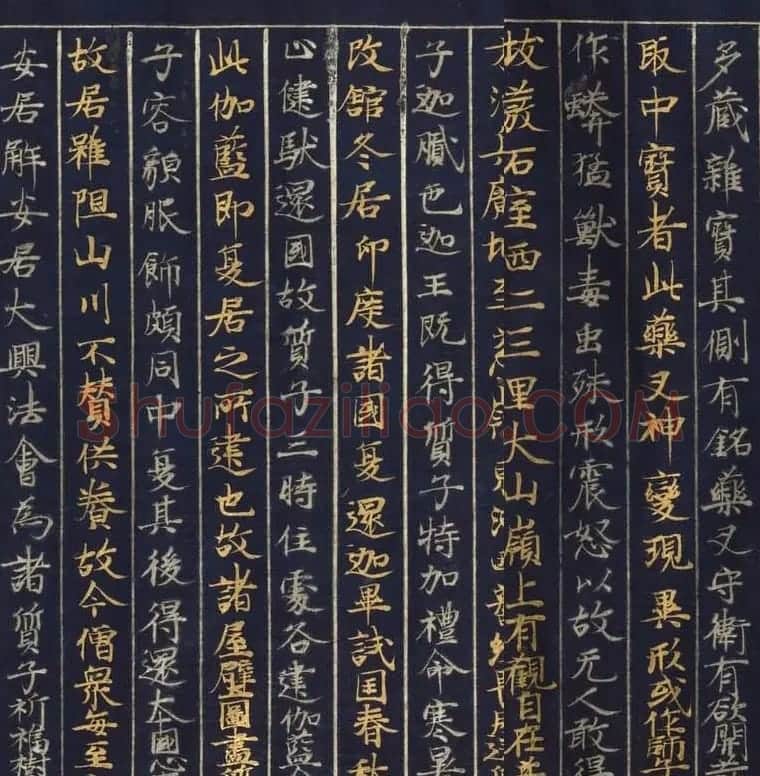 多藏雜寶其側有銘藥叉守衛有欲開
取中寶者此藥叉神變現異形或作師
作蟒猛獸毒虫殊形震怒以故无人敢得
石室西二三里大山嶺上有觀自在
子迦膩色迦王既得質子特加禮命寒暑
改館冬居印度諸國夏還迦畢試國春秋
止健馱邏國故質子三時住處各建伽藍
此伽藍即夏居之所建也故諸屋壁圖畫
子容貌服飾頗同中夏其後得還本國心
故居雖阻山川不替供養故今僧衆每至
安居解安居大興法會為諸質子祈福樹
Shufaziliao.COM